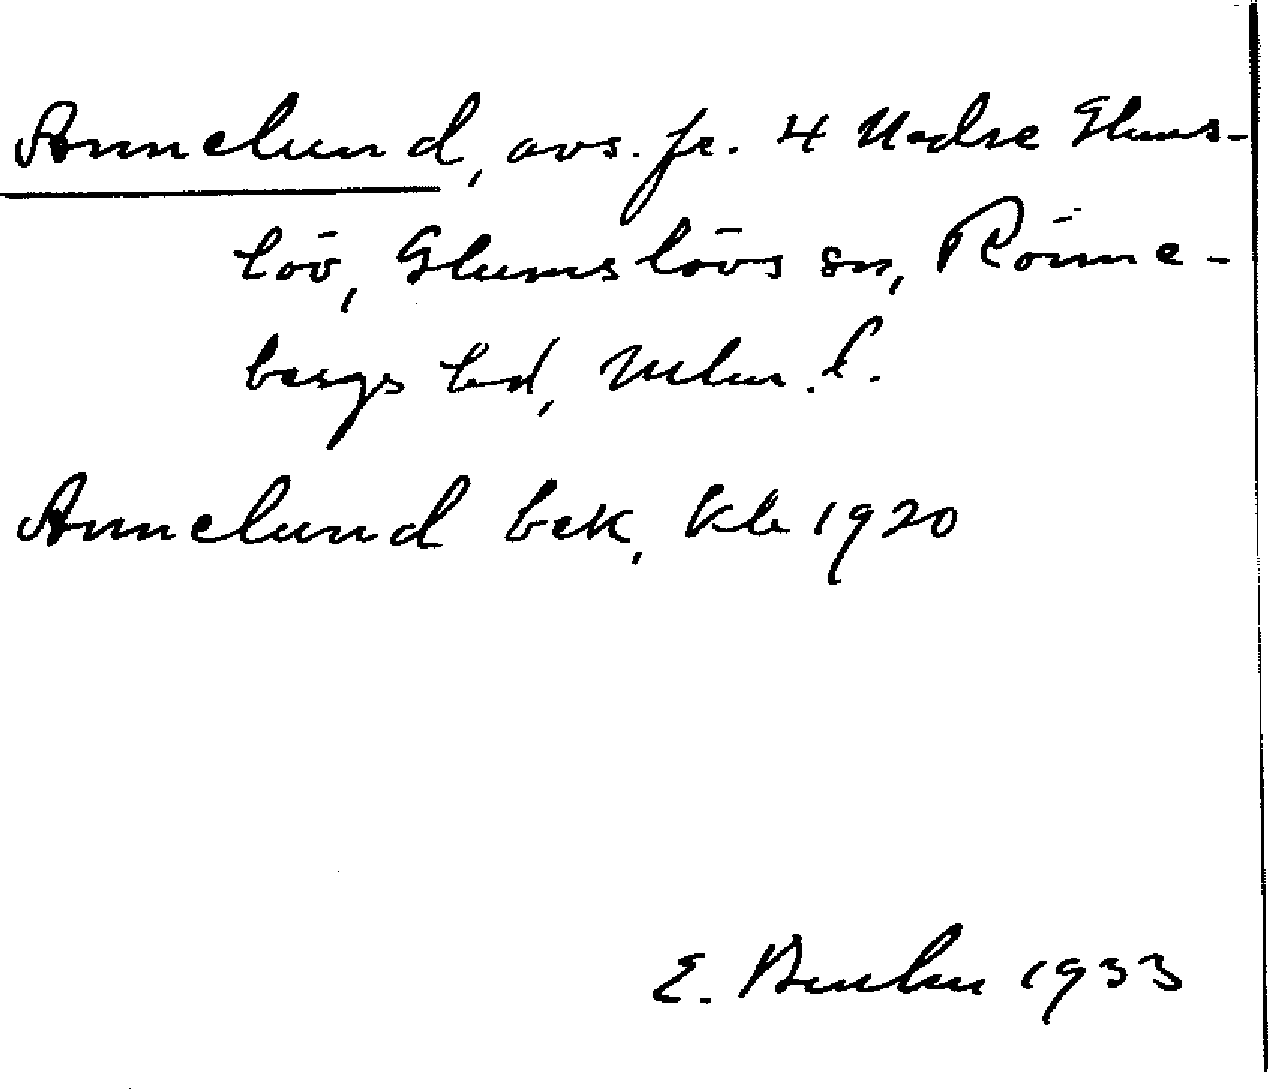 Annelund, avs. fr. 4 Nedre Glums-
löv, Glumslövs sn, Rönne-
bergs hd, Mlm. l.
Annelund bek, Kb 1920
E. 1933